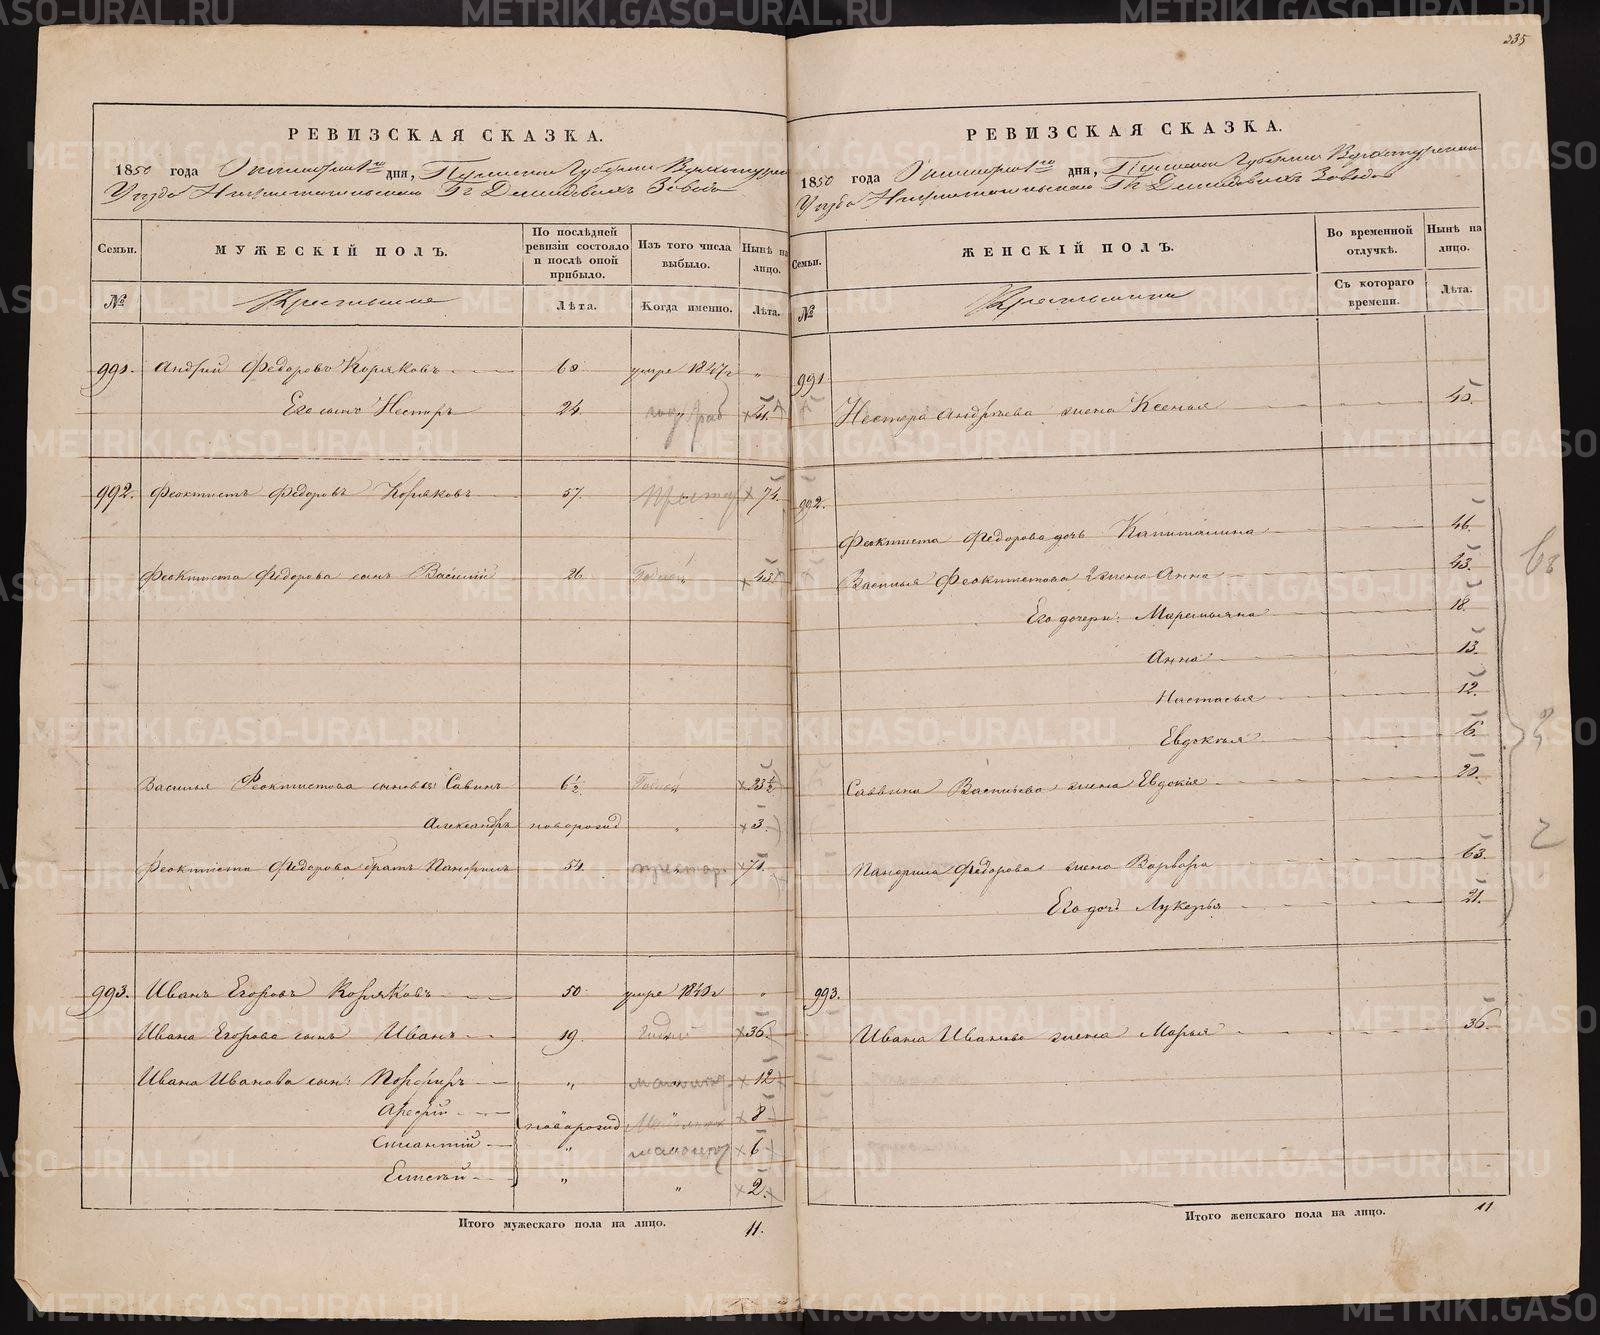 235
РЕВИЗСКАЯ СКАЗКА.
1850 года Октября 1го дня, Пермской Губернии Верхотурскаго
Уезда Нижнетагильскаго Гг Демидовыхъ Завода
Семьи. МУЖЕСКІЙ ПОЛЪ. По последней ревизіи состояло и после оной прибыло. Изъ того числа выбыло. Ныне на лицо.
№ Крестьяне Лѣта. Когда именно. Лѣта.
991. Андрей Федоровъ Коряковъ 60 умре 1847г "
Его сынъ Несторъ 24. 41.
992. Феоктистъ Федоровъ Коряковъ 57. 74.
Феоктиста Федорова сынъ Василий 26 43
Василья Феоктистова сыновья: Савинъ 6½ 23½
Александръ новорожд " 3.
Феоктиста Федорова братъ Панфилъ 54. престар. 71.
993. Иванъ Егоровъ Коряковъ 50 умре 1840г "
Ивана Егорова сынъ Иванъ 19. 36.
Ивана Иванова сын: Порфиръ " 12
Арефий 8
новорожд
" 6
Елисей " " 2.
Итого мужескаго пола на лицо. 11.
РЕВИЗСКАЯ СКАЗКА.
1850 года Октября 1го дня, Пермской Губернии Верхотурскаго
Уезда Нижнетагильскаго Гг Демидовыхъ Заводовъ
Семьи. ЖЕНСКІЙ ПОЛЪ. Во временной отлучкѣ. Нынѣ на лицо.
№ Съ котораго времени. Лѣта.
991.
Нестера Андреева жена Ксенья 40.
992.
Феоктиста Федорова дочь Капитолина 46.
Василья Феоктистова 2 жена Анна 43.
Его дочери: Маремьяна 18.
Анна 13.
Настасья 12.
Евдокья 6.
Саввина Васильева жена Евдокия 20.
Панфила Федорова жена Варвара 63.
Его дочь Лукерья 21.
993.
Ивана Иванова жена Марья 36.
Итого женскаго пола на лицо. 11
METRIKI.GASO-URAL.RU